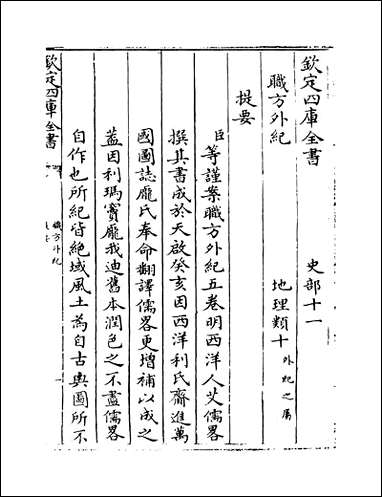 欽定四庫全書　史部十一
職方外紀　地理類十外紀之屬
提要
臣等謹案職方外紀五卷明西洋人艾儒畧
撰其書成於天啟癸亥因西洋利氏齎進萬
國圖誌龐氏奉命翻譯儒畧更增補以成之
蓋因利瑪竇龐我迪舊本潤色之不盡儒畧
自作也所紀皆絶域風土為自古輿圖所不
欽定四庫全書
職方外紀